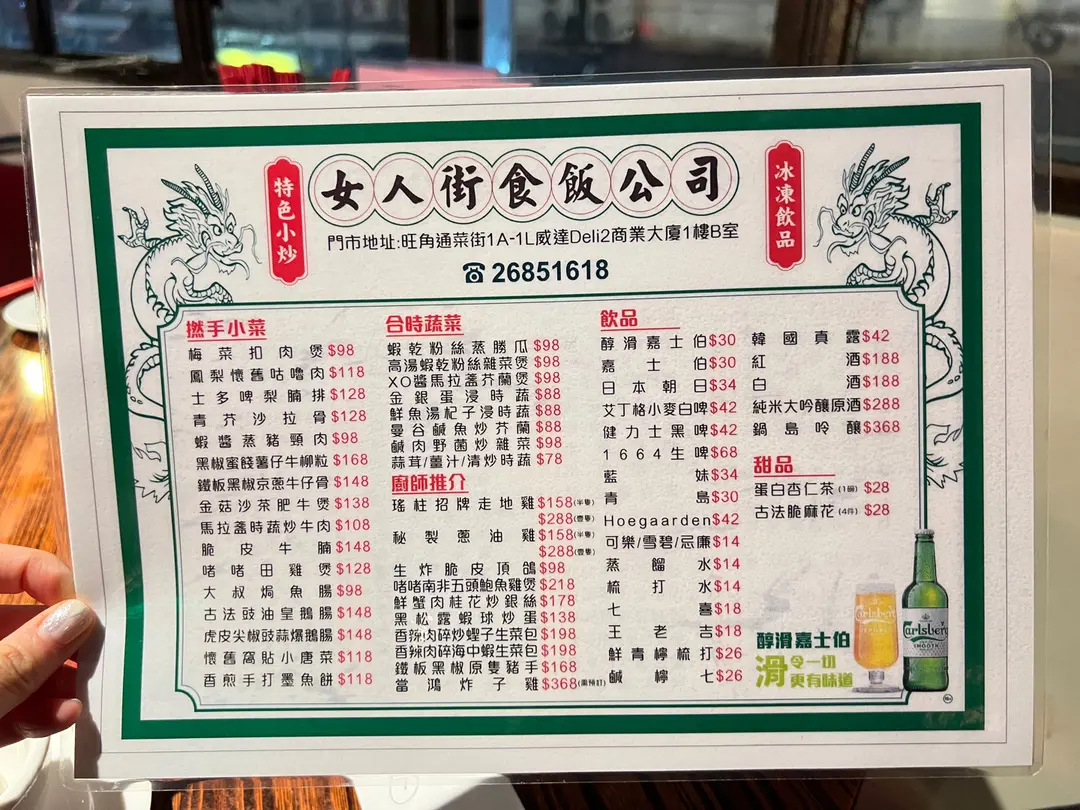 特色小炒
女人街食飯公司
冰凍飲品
門市地址:旺角通菜街1A-1L威達Deli2商業大廈1樓B室
☎ 26851618
撚手小菜
梅菜扣肉煲$98
鳳梨懷舊咕嚕肉$118
士多啤梨腩排$128
青芥沙拉骨$128
蝦醬蒸豬頸肉$98
黑椒蜜餞薯仔牛柳粒$168
鐵板黑椒京蔥牛仔骨$148
金菇沙茶肥牛煲$138
馬拉盞時蔬炒牛肉$108
脆皮牛腩$148
啫啫田雞煲$128
大叔焗魚腸$98
古法豉油皇鵝腸$148
虎皮尖椒豉蒜爆鵝腸$148
懷舊窩貼小唐菜$118
香煎手打墨魚餅$118
合時蔬菜
蝦乾粉絲蒸勝瓜$98
高湯蝦乾粉絲雜菜煲$98
XO醬馬拉盞芥蘭煲$98
金銀蛋浸時蔬$88
鮮魚湯杞子浸時蔬$88
曼谷鹹魚炒芥蘭$88
鹹肉野菌炒雜菜$98
蒜茸/薑汁/清炒時蔬$78
廚師推介
瑤柱招牌走地雞$158(半隻)
$288(壹隻)
秘製蔥油雞$158(半隻)
$288(壹隻)
生炸脆皮頂鴿$98
啫啫南非五頭鮑魚雞煲$218
鮮蟹肉桂花炒銀絲$178
黑松露蝦球炒蛋$138
香辣肉碎炒蟶子生菜包$198
香辣肉碎海中蝦生菜包$198
鐵板黑椒原隻豬手$168
當鴻炸子雞$368(需預訂)
飲品
醇滑嘉士伯$30
嘉士伯$30
日本朝日$34
艾丁格小麥白啤$42
健力士黑啤$42
1664生啤$68
藍妹$34
青島$30
Hoegaarden$42
可樂/雪碧/忌廉$14
蒸餾水$14
梳打水$14
七喜$18
王老吉$18
鮮青檸梳打$26
鹹檸七$26
韓國真露$42
紅酒$188
白酒$188
純米大吟釀原酒$288
鍋島吟釀$368
甜品
蛋白杏仁茶(1碗) $28
古法脆麻花(4件) $28
醇滑嘉士伯
滑令一切
更有味道
Carlsberg
Carlsberg
SMOOTH